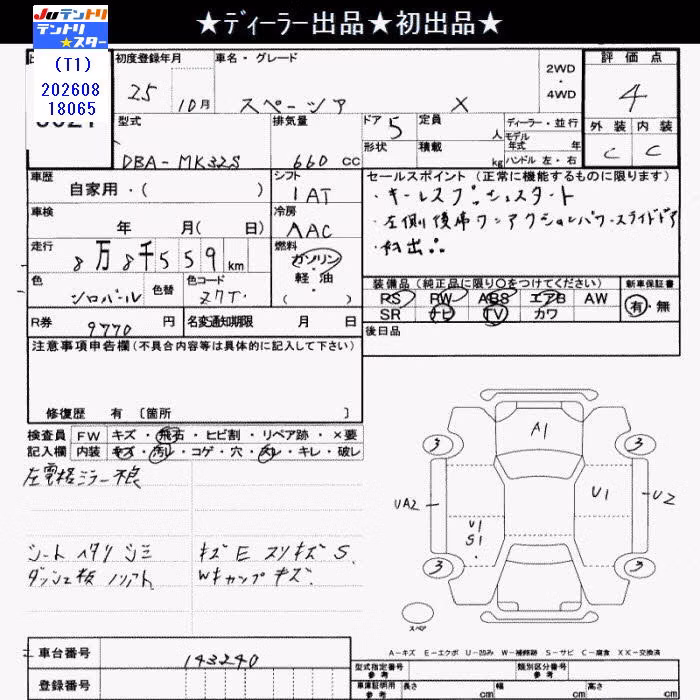 ★ディーラー出品★初出品★
JUテントリ
テントリ★スター
(T1)
202608
18065
初度登録年月 車名・グレード 2WD・4WD 評価点
25 10月 スペーシア X 4
型式 排気量 ドア 5 定員 人 ディーラー・並行 外装 内装
形状 積載 kg モデル年式 年 ハンドル 左・右 C C
DBA-MK32S 660 CC
車歴 シフト セールスポイント (正常に機能するものに限ります)
自家用・( ) IAT ・キーレスプッシュスタート
車検 冷房 ・左側後席ワンアクションパワースライドドア
年 月( 日) AAC ・初出品
走行 燃料
8万8千559km ガソリン・軽油・( )
色 色替 色コード 装備品(純正品に限り○をつけてください) 新車保証書
シロパール Z7T. RS PW ABS エアB AW 有・無
SR ナビ TV カワ
R券 9770 円 名変通知期限 月 日 後日品
注意事項申告欄(不具合内容等は具体的に記入して下さい)
修復歴 有 〔箇所 〕
検査員 FW キズ・飛石・ヒビ割・リペア跡・×要
記入欄 内装 キズ・汚レ・コゲ・穴・スレ・キレ・破レ
左電格ミラー不良
シート ヘタリ シミ キズ E スリキズ S.
ダッシュ板 ノリアト Wキャンプ キズ.
A1
3 3
UA2 U1 U2
U1
S1
3 3
スペア
A-キズ E-エクボ U-凹み W-補修跡 S-サビ C-腐食 XX-交換済
車台番号 143240
登録番号
型式指定番号 参考 類別区分番号 参考
車庫証明用 参考 長さ cm 幅 cm 高さ cm